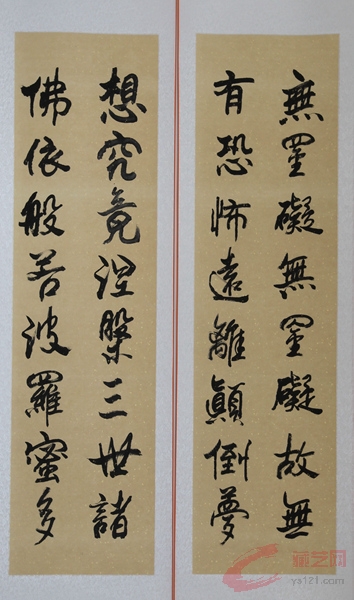 無罣礙無罣礙故無
有恐怖遠離顛倒夢
想究竟涅槃三世諸
佛依般若波羅蜜多
藏艺网
ys121.com